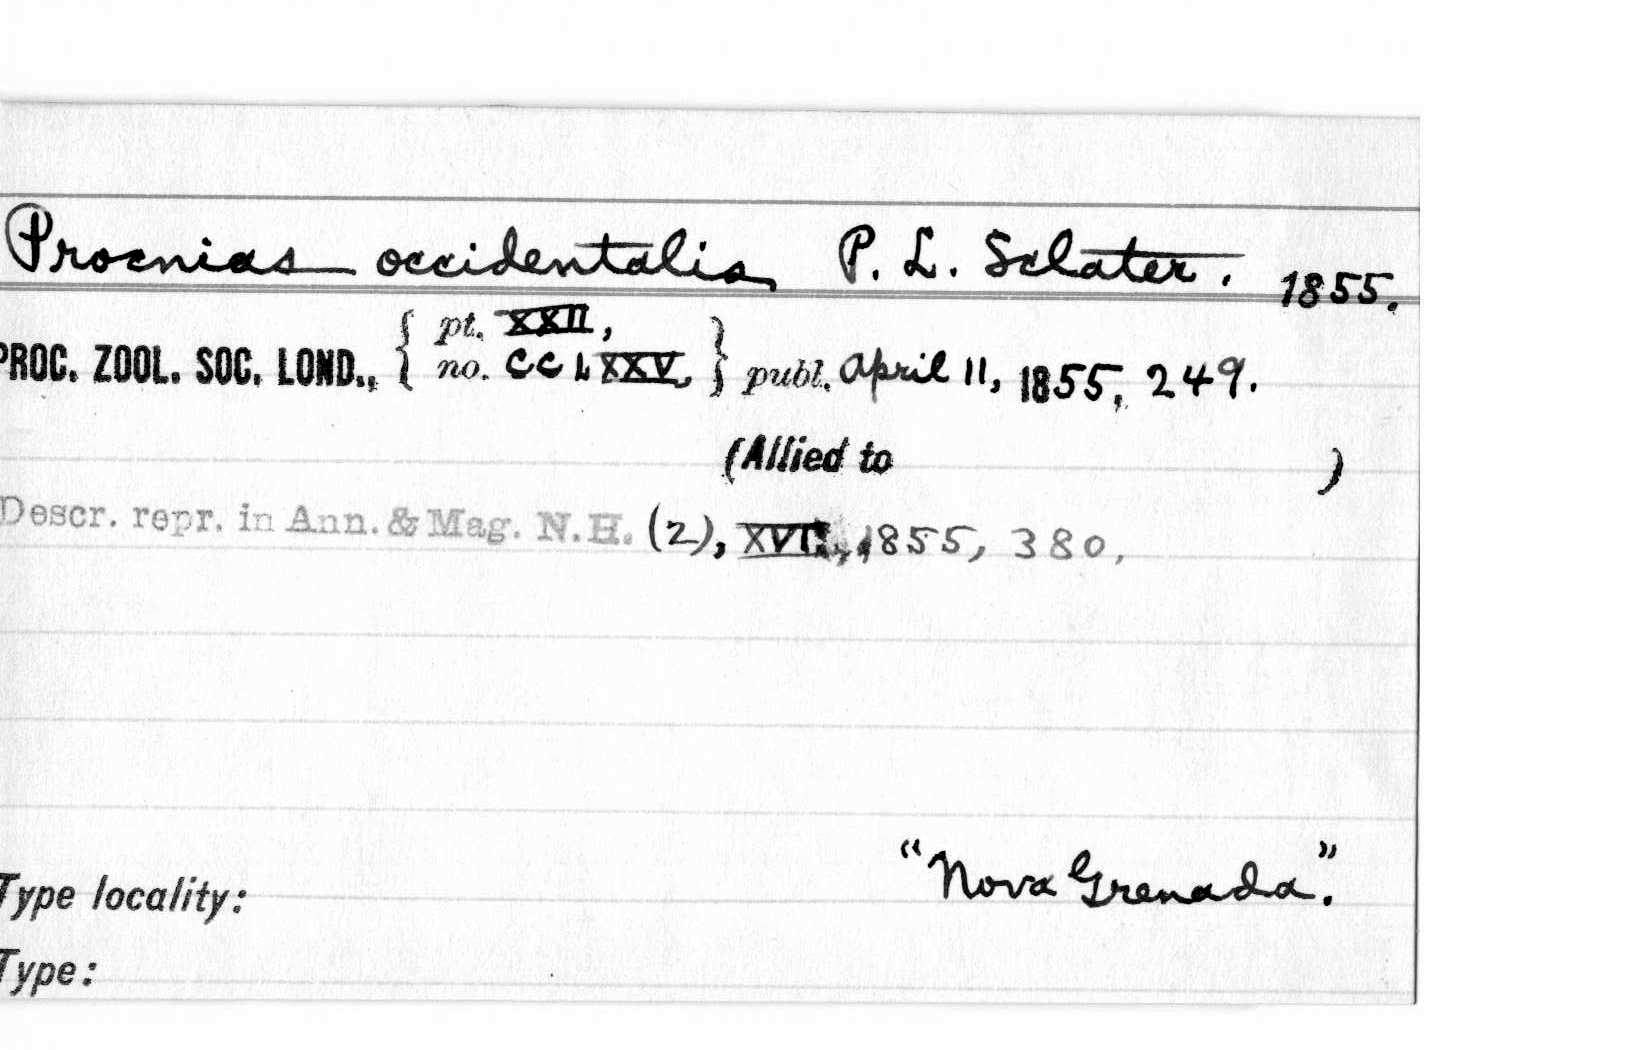 Procnias occidentalis P. L. Sclater. 1855.
PROC. ZOOL. SOC. LOND., { pt. XXII, no. CCLXXV, } publ. April 11, 1855, 249.
(Allied to )
Descr. repr. in Ann. & Mag. N.H. (2), XVI., 1855, 380,
"Nova Grenada".
Type locality:
Type: